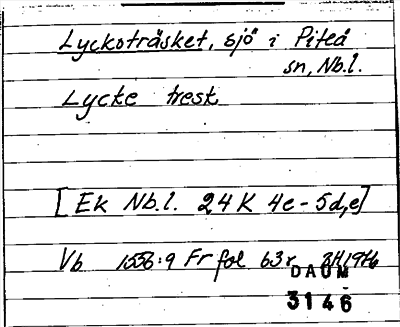 Lyckoträsket, sjö i Piteå
sn, Nb.l.
Lycke tresk
[Ek Nb.l. 24K 4e-5d,e]
Vb 1556:9 Fr fol 63r
DAUM
3146